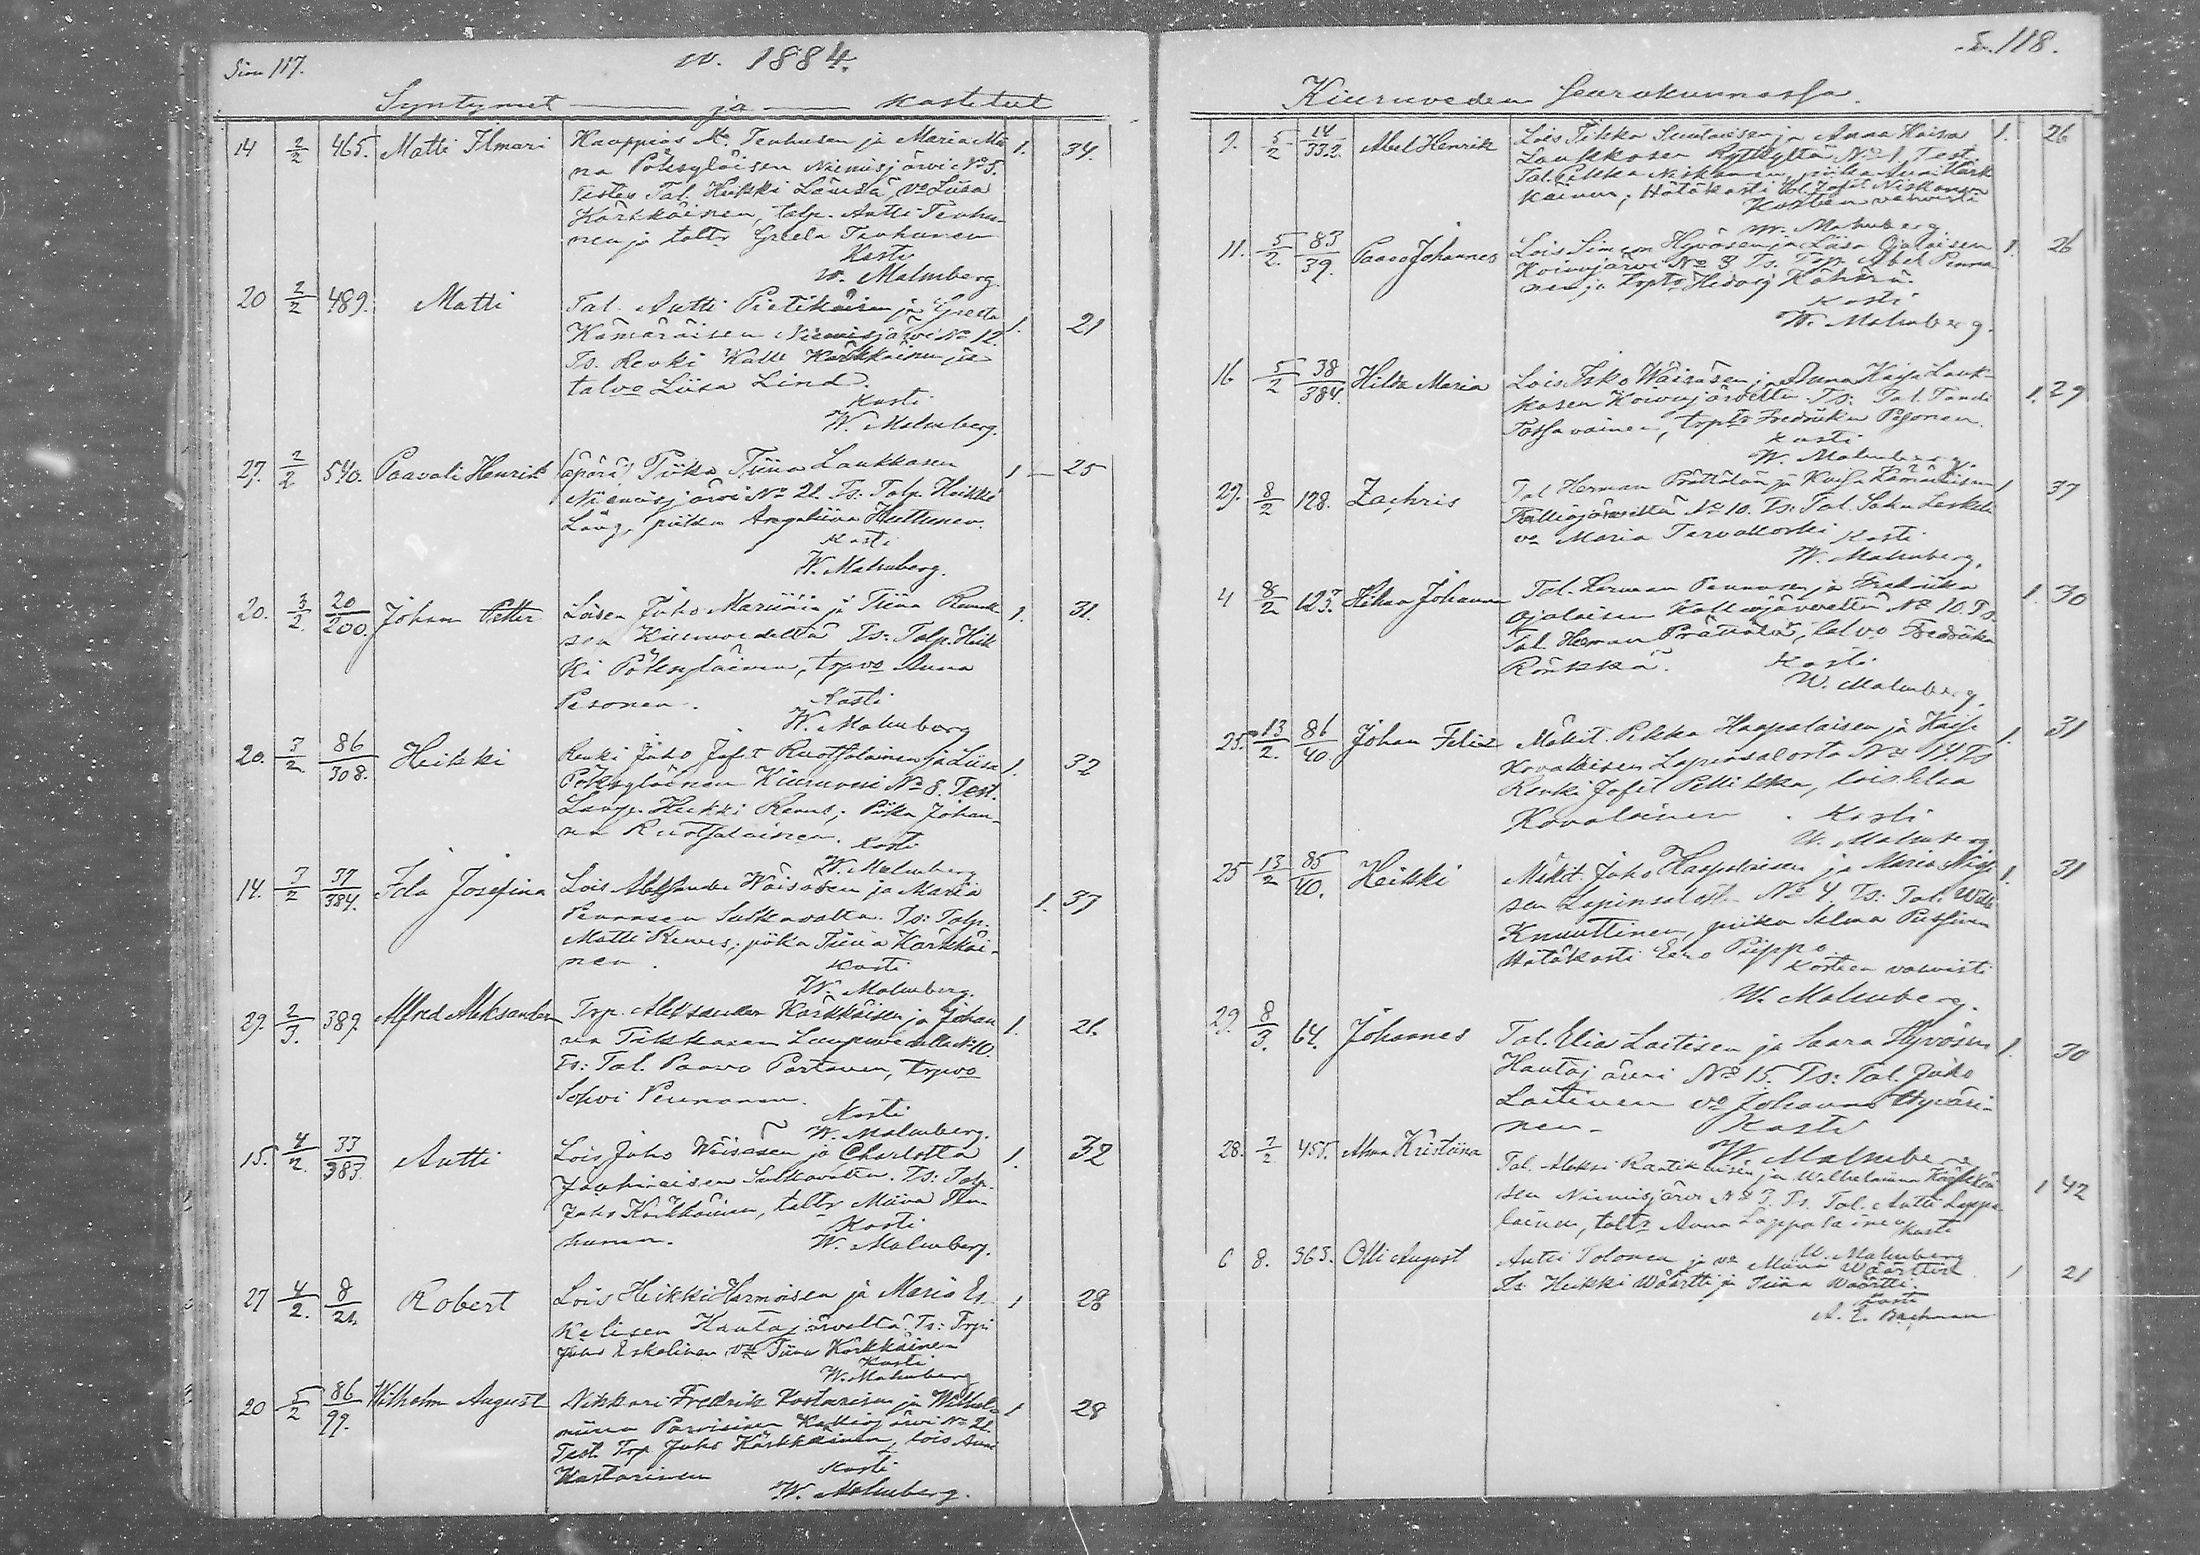 Siv. 117.
v. 1884.
Syntynet — ja — kastetut
14 2/2 465. Matti Ilmari Kauppias A. Tenhusen ja Maria Mii- 1. 34.
na Pöksyläisen Niemisjärvi No 5.
Testes Tal. Heikki Lämsä, vo Liisa
Kärkkäinen, talp. Antti Tenhu-
nen ja taltr Greeta Tenhunen
Kasti
W. Malmberg.
20 2/2 489. Matti Tal. Antti Pietikäisen ja Greeta
Kämäräisen Niemisjärvi No 12. 1. 21
Ts. Renki Kalle Kärkkäinen ja
talvo Liisa Lind.
Kasti
W. Malmberg.
27. 2/2 540. Paavali Henrik (äpärä) Piika Tiina Laukkasen 1 — 25
Niemisjärvi No 21. Ts: Talp. Heikki
Lång, piika Annaliina Huttunen.
Kasti
W. Malmberg.
20. 3/2 20/200. Johan Petter Loisen Juho Mariinin ja Tiina Remek- 1. 31.
sen Kiuruvedeltä Ts: Talp. Heik
ki Pöksyläinen, trpvo Anna
Pesonen. Kasti
W. Malmberg
20. 3/2 86/308. Heikki Renki Juho Jafet Ruotsalainen ja Liisa 1. 32
Pöksyläinen Kiuruvesi No 8. Test.
Heikki Remes; Piika Johan-
na Ruotsalainen. Kasti
W. Malmberg
14. 3/2 37/384. Ida Josefina Lois Aleksander Wäisäsen ja Maria 1. 37
Pennasen Sulkavalta. Ts: Talp.
Matti Remes; piika Tiina Kärkkäi-
nen. Kasti
W. Malmberg.
29. 2/3. 389. Alfred Aleksander Trp. Aleksander Kärkkäisen ja Johan 1. 26.
na Tikkasen No 10.
Ts: Tal. Paavo Partanen, trpvo
Sohvi Pennanen.
Kasti
W. Malmberg.
15. 4/2. 33/383. Antti Lois Juho Wäisäsen ja Charlotta 1. 32
Jauhiaisen Sulkavalta. Ts: Talp.
Juho Kärkkäinen, taltr Miina Ten-
hunen. Kasti
W. Malmberg.
27 4/2. 8/21. Robert Lois Heikki Harmoisen ja Maria Es- 1 28
kelisen Hautajärveltä. Ts: Trp.
Juho Eskelinen vo Tiina Kärkkäinen
Kasti
W. Malmberg
20 5/2 86/99. Wilhelm August Nikkari Fredrik Kastarisen ja Wilhel- 1 28
miina Parviaisen Kalliojärvi No 21.
Test. Trp. Juho Kärkkäinen, lois Anni
Kastarinen Kasti
W. Malmberg.
S. 118.
Kiuruveden Seurakunnassa.
9. 5/2 14/332. Abel Henrik Lois Pekka Suutarisen ja Anna Kaisa 1. 26
Laukkasen Ryttkyltä No 1, Test.
Tal. Pekka Niskanen, piika Anni Kärk
käinen; Hätäkasti Tal. Jafet Niskanen
Kasteen vahvisti
W. Malmberg
11. 5/2. 83/39. Paavo Johannes Lois Simon Hyvösen ja Liisa Ojalaisen 1. 26
Koivujärvi No 3 Ts. Trp. Abel Penna-
nen ja trptr Hedvig Kähärä.
Kasti
W. Malmberg.
16 5/2 38/384. Hilda Maria Lois Isko Wäisäsen ja Anna Kaisa Lauk-
kasen Koivujärveltä. Ts: Tal. Taneli 1. 29
Tossavainen, trptr Fredrika Pesonen.
Kasti
W. Malmberg.
29. 8/2 128. Zachris Tal Herman Prättälän ja Kaisa Kämäräisen 1 37
Kalliojärveltä No 10. Ts: Tal. Saku Leskelä
vo Maria Tervakoski Kasti
W. Malmberg.
4 8/2 123. Johanna Tal. Herman Pennasen ja Fredrika 1. 30
Ojalaisen Kalliojärveltä No 10. Ts.
Tal. Herman Prättälä, talvo Fredrika
Rönkkä. Kasti
W. Malmberg.
25. 13/2. 86/40 Johan Felix Mäkit. Pekka Haapalaisen ja Kaisa 1. 31
Kovalaisen Lapinsalosta No 14. Ts
Renki Jafet Pellikka, lois Elsa
Kovalainen. Kasti
W. Malmberg
25 13/2 85/40. Heikki Mäkit. Juho Haapalaisen ja Maria 1. 31
sen Lapinsalost. No 4. Ts: Tal. Wille
Knuuttinen, piika Selma
Hätäkasti Eero Piippo.
Kasteen vahvisti
W. Malmberg.
29. 8/3. 64. Johannes Tal. Elias Laitisen ja Saara Hyvösen 1. 30
Hautajärvi No 15. Ts: Tal. Juho
Laitinen vo Johanna Hyväri-
nen. Kasti
W. Malmberg
28. 7/2 455. Alma Kristiina Tal. Aleksi Raatikaisen ja Wilhelmiina Kärkkäi 1 42
sen Niemisjärvi No 3. Ts. Tal. Antti Leppä
läinen, taltr Anna Lappalainen Kasti
W. Malmberg
6 8. 363. Olli August Antti Tolonen ja vo Miina Wäärtti 1 21
Ts. Heikki Wäärtti ja Tiina Wäärtti.
Kasti
A. E. Bachman